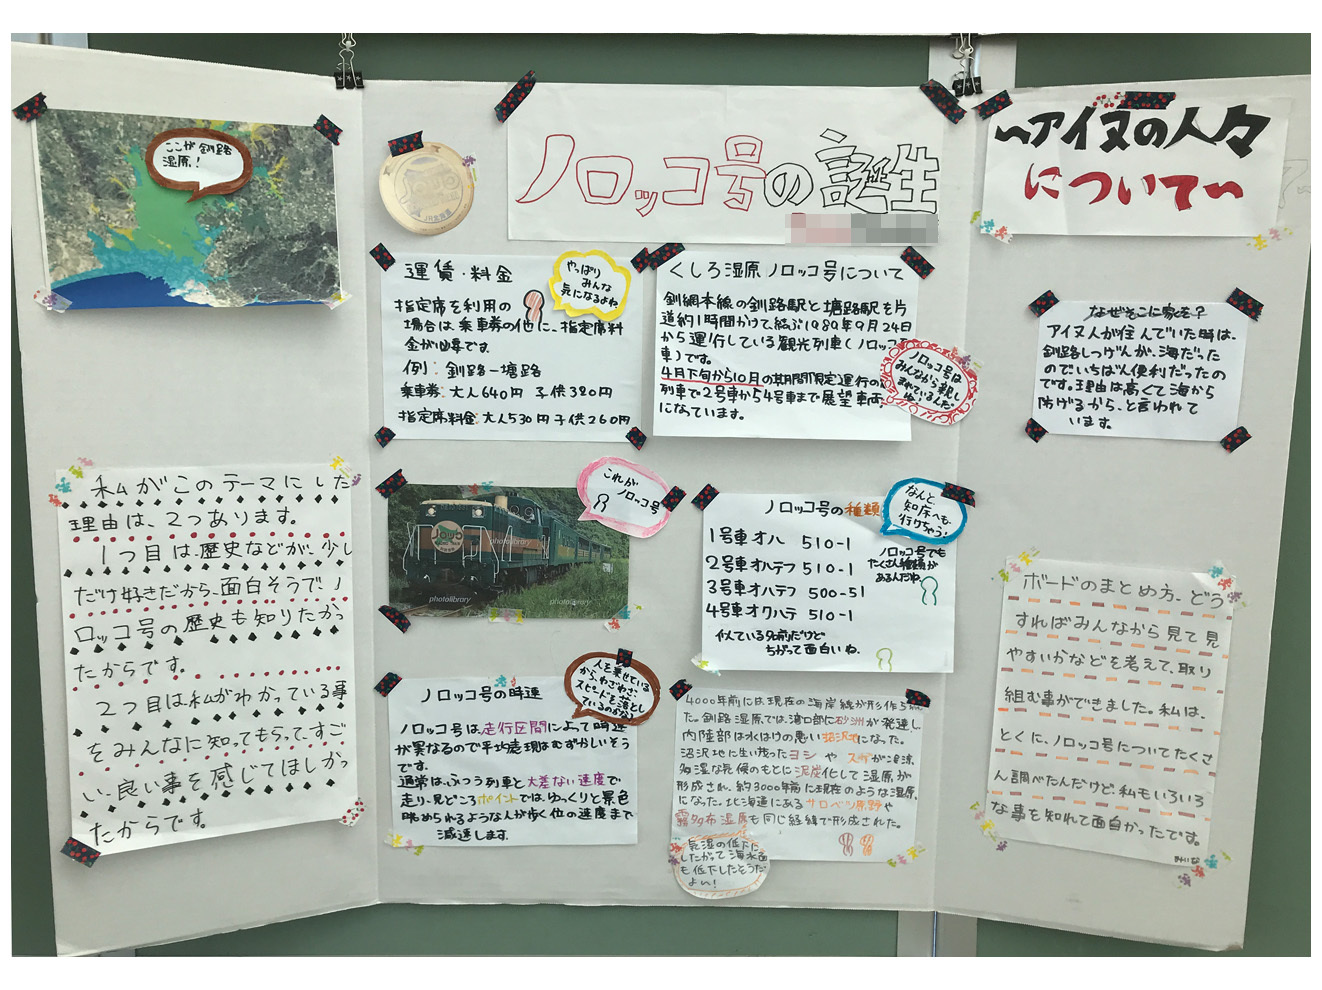 ここが釧路
湿原!
私がこのテーマにした
理由は、2つあります。
1つ目は、歴史などが、少し
だけ好きだから、面白そうで、ノ
ロッコ号の歴史も知りたかっ
たからです。
2つ目は私がわかっている事
をみんなに知ってもらって、すご
い、良い事を感じてほしかっ
たからです。
ノロッコ号の誕生
JR北海道
運賃・料金
やっぱり
みんな
気になるよね
指定席を利用の
場合は、乗車券の他に、指定席料
金が必要です。
例:釧路ー塘路
乗車券:大人640円 子供320円
指定席料金:大人530円子供260円
くしろ湿原ノロッコ号について
釧網本線の釧路駅と塘路駅を片
道約1時間かけて結ぶ1989年9月24日
から運行している観光列車(ノロッコ列
車)です。
4月下旬から10月の期間限定運行の
列車で2号車から4号車まで展望車両
になっています。
ノロッコ号は
みんなから親し
まれているんだ
これが
ノロッコ号
NOROCCO
photolibrary
photolibrary
photolibrary
ノロッコ号の種類
なんと
知床へも
行けちゃう!
1号車オハ 510-1
2号車オハテフ 510-1
3号車オハテフ 500-51
4号車オクハテ 510-1
ノロッコ号でも
たくさん種類が
あるんだね
似ている名前だけど
ちがって面白いね.
ノロッコ号の時速
人を乗せている
からわざわざ
スピードを落とし
ているのかな
ノロッコ号は走行区間によって時速
が異なるので平均表現はむずかしいそう
です。
通常は、ふつう列車と大差ない速度で
走り、見どころポイントでは、ゆっくりと景色
眺められるような人が歩く位の速度まで
減速します.
4000年前には現在の海岸線が形作られ
た。釧路湿原では、湾口部に砂洲が発達し
内陸部は水はけの悪い沼沢地になった。
沼沢地に生い茂ったヨシやスゲが冷涼
多湿な気候のもとに泥炭化して湿原が
形成され、約3000年前に現在のような湿原
になった。北海道にあるサロベツ原野や
霧多布湿原も同じ経緯で形成された。
気温の低下に
したがって海水面
も低下したそうだ
よい!
〜アイヌの人々
について〜
なぜそこに家を?
アイヌ人が住んでいた時は、
釧路しつげんが、海だった
のでいちばん便利だったの
です。理由は高くて海から
防げるから、と言われて
います。
ボードのまとめ方、どう
すればみんなから見て見
やすいかなどを考えて、取り
組む事ができました。私は、
とくに、ノロッコ号についてたくさ
ん調べたんだけど、私もいろいろ
な事を知れて面白かったです。